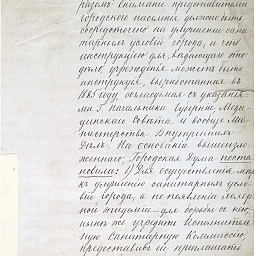 разомъ вниманіе представителей
городского населенія должно быть
сосредоточено на улучшеніи сани-
тарныхъ условій города, и что
инструкціею для вѣдающаго это
дѣло, учрежденія можетъ быть
инструкція, выработанная въ
1885 году, согласуемая съ указанія-
ми Г. Начальника Губерніи, Меди-
цинскаго Совѣта и вообще Ми-
нистерства Внутреннихъ
Дѣлъ. На основаніи вышеизло-
женнаго, Городская Дума поста-
новила: 1) Для осуществленія мѣръ
къ улучшенію санитарныхъ усло-
вій города, а по появленіи холер-
ной эпидеміи для борьбы съ нею,
нынѣ же учредить Исполнитель-
ную Санитарную Коммиссію,
предоставивъ ей приглашать